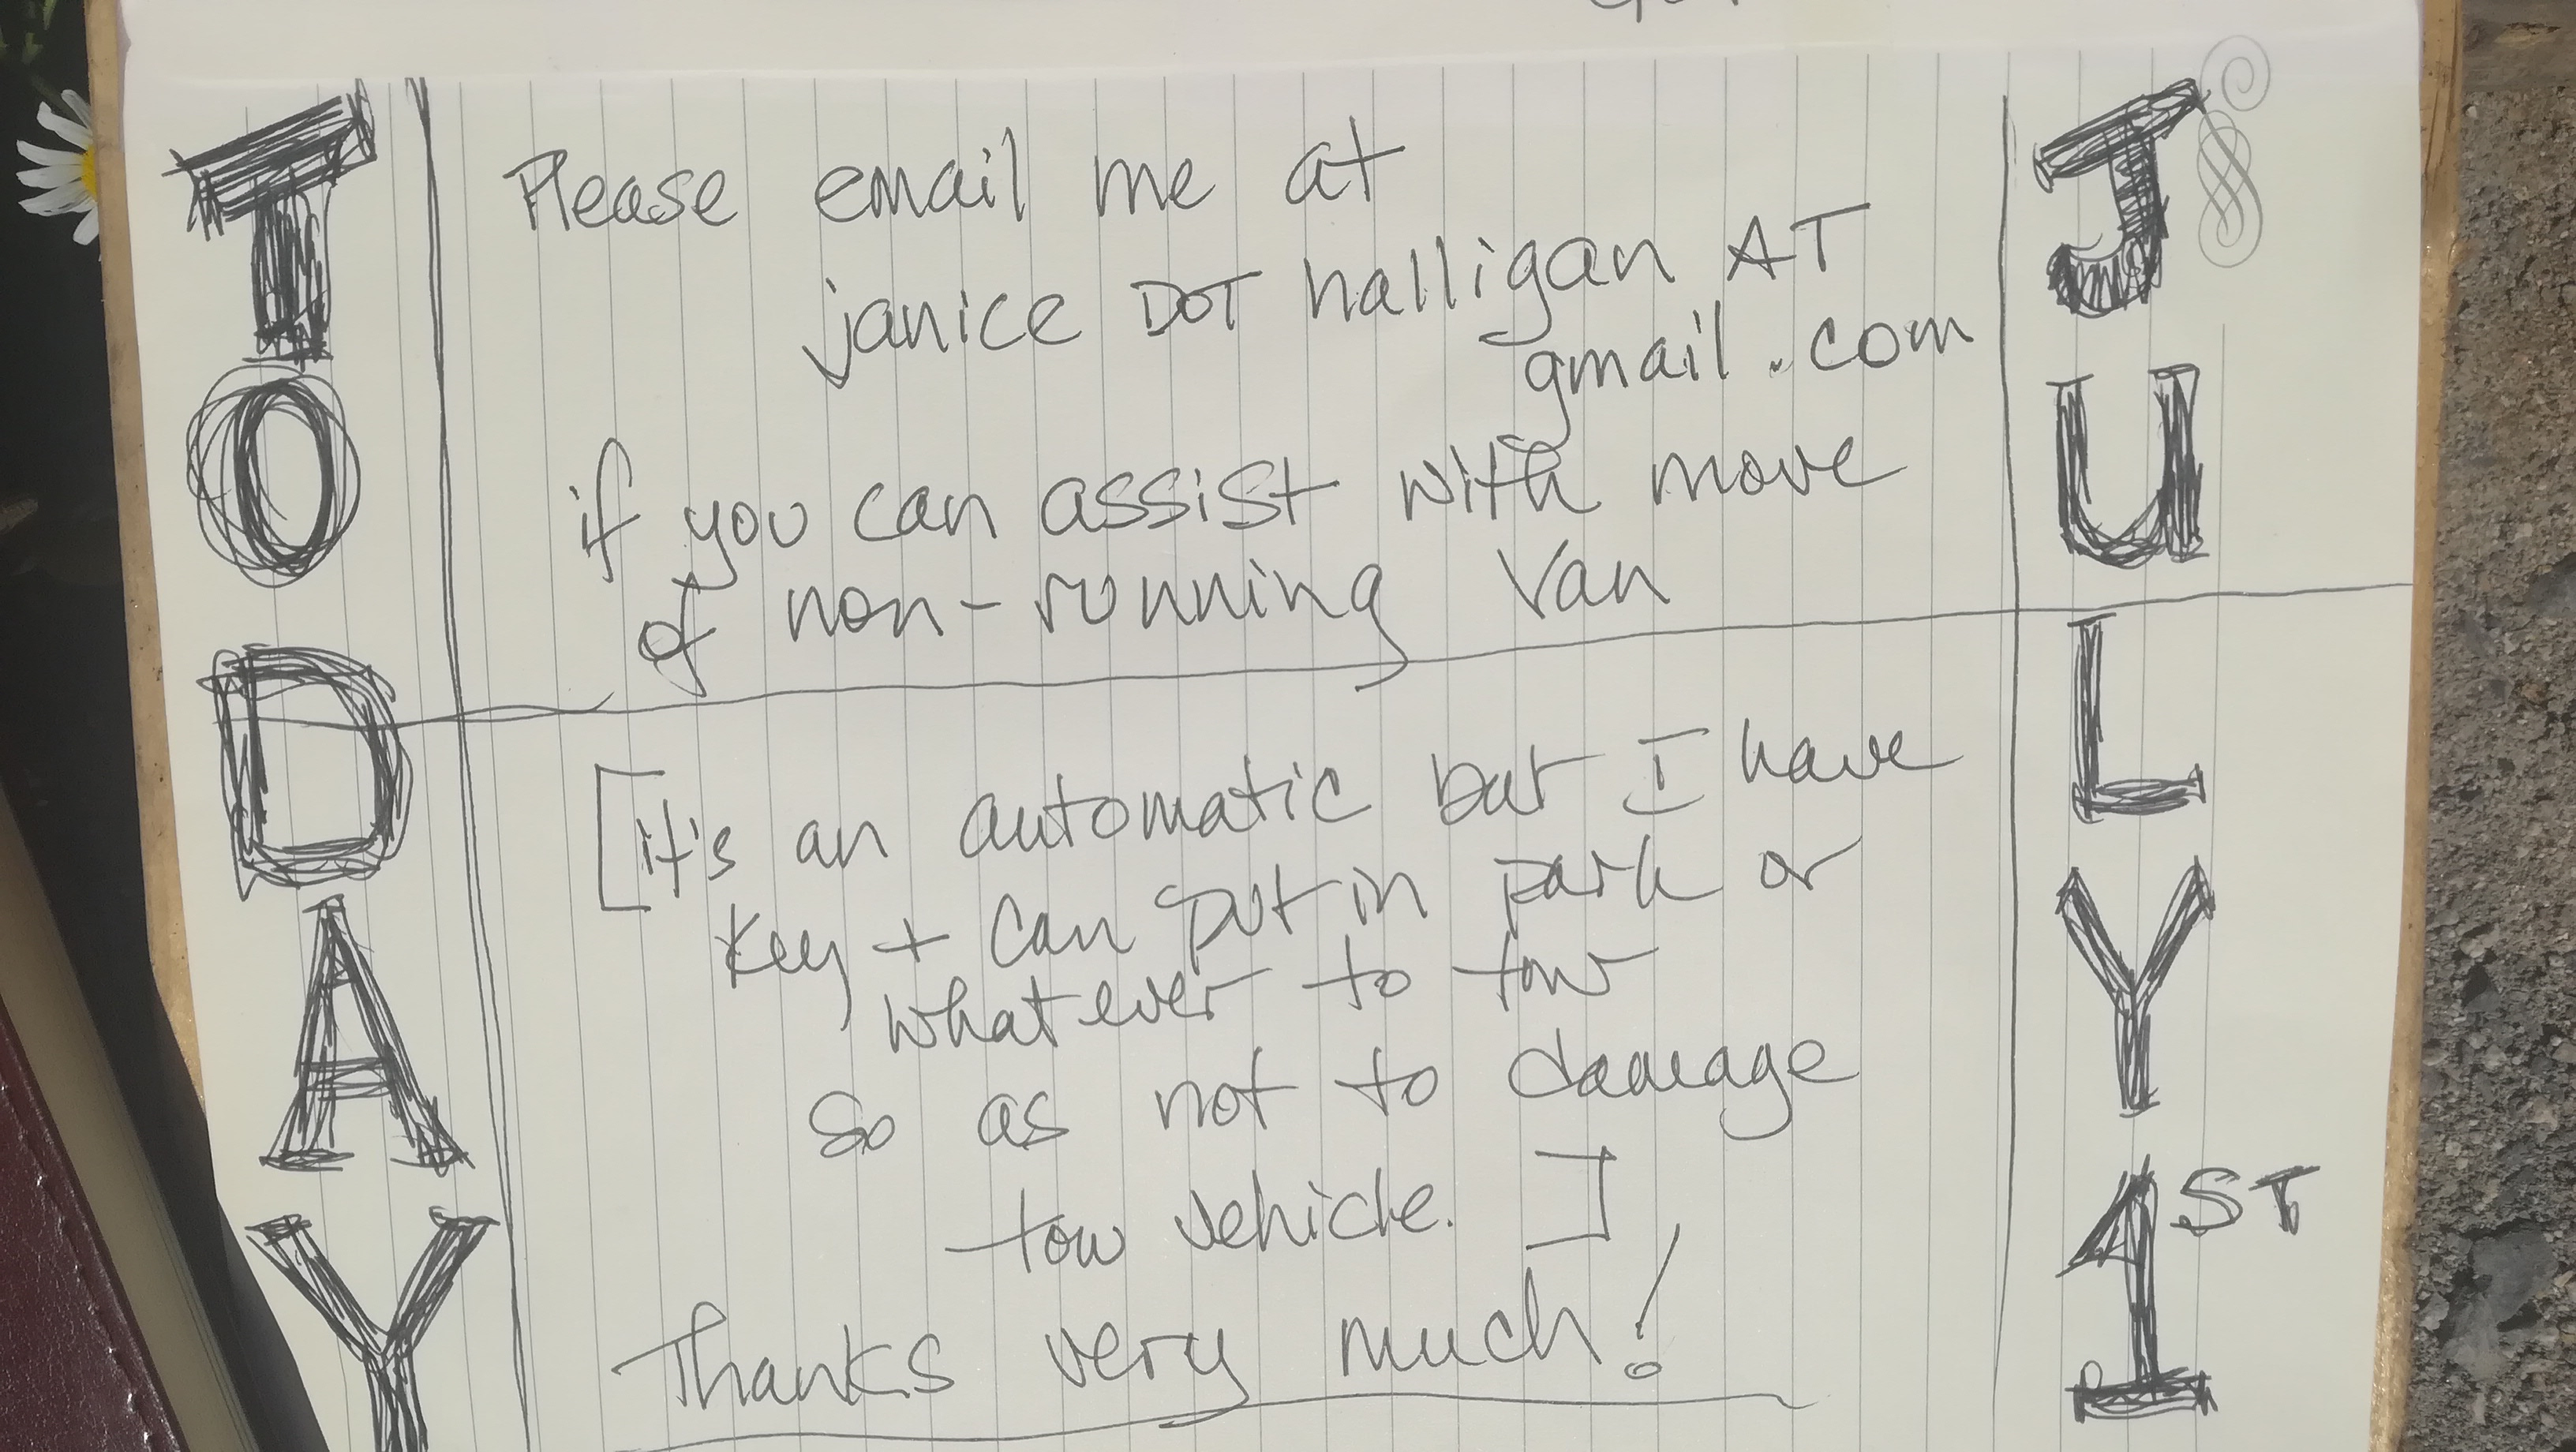 TODAY
Please email me at
janice DOT halligan AT
gmail.com
if you can assist with move
of non-running Van
[it's an automatic but I have
key + can put in park or
whatever to tow
so as not to damage
tow vehicle.]
Thanks very much!
JULY
1ST